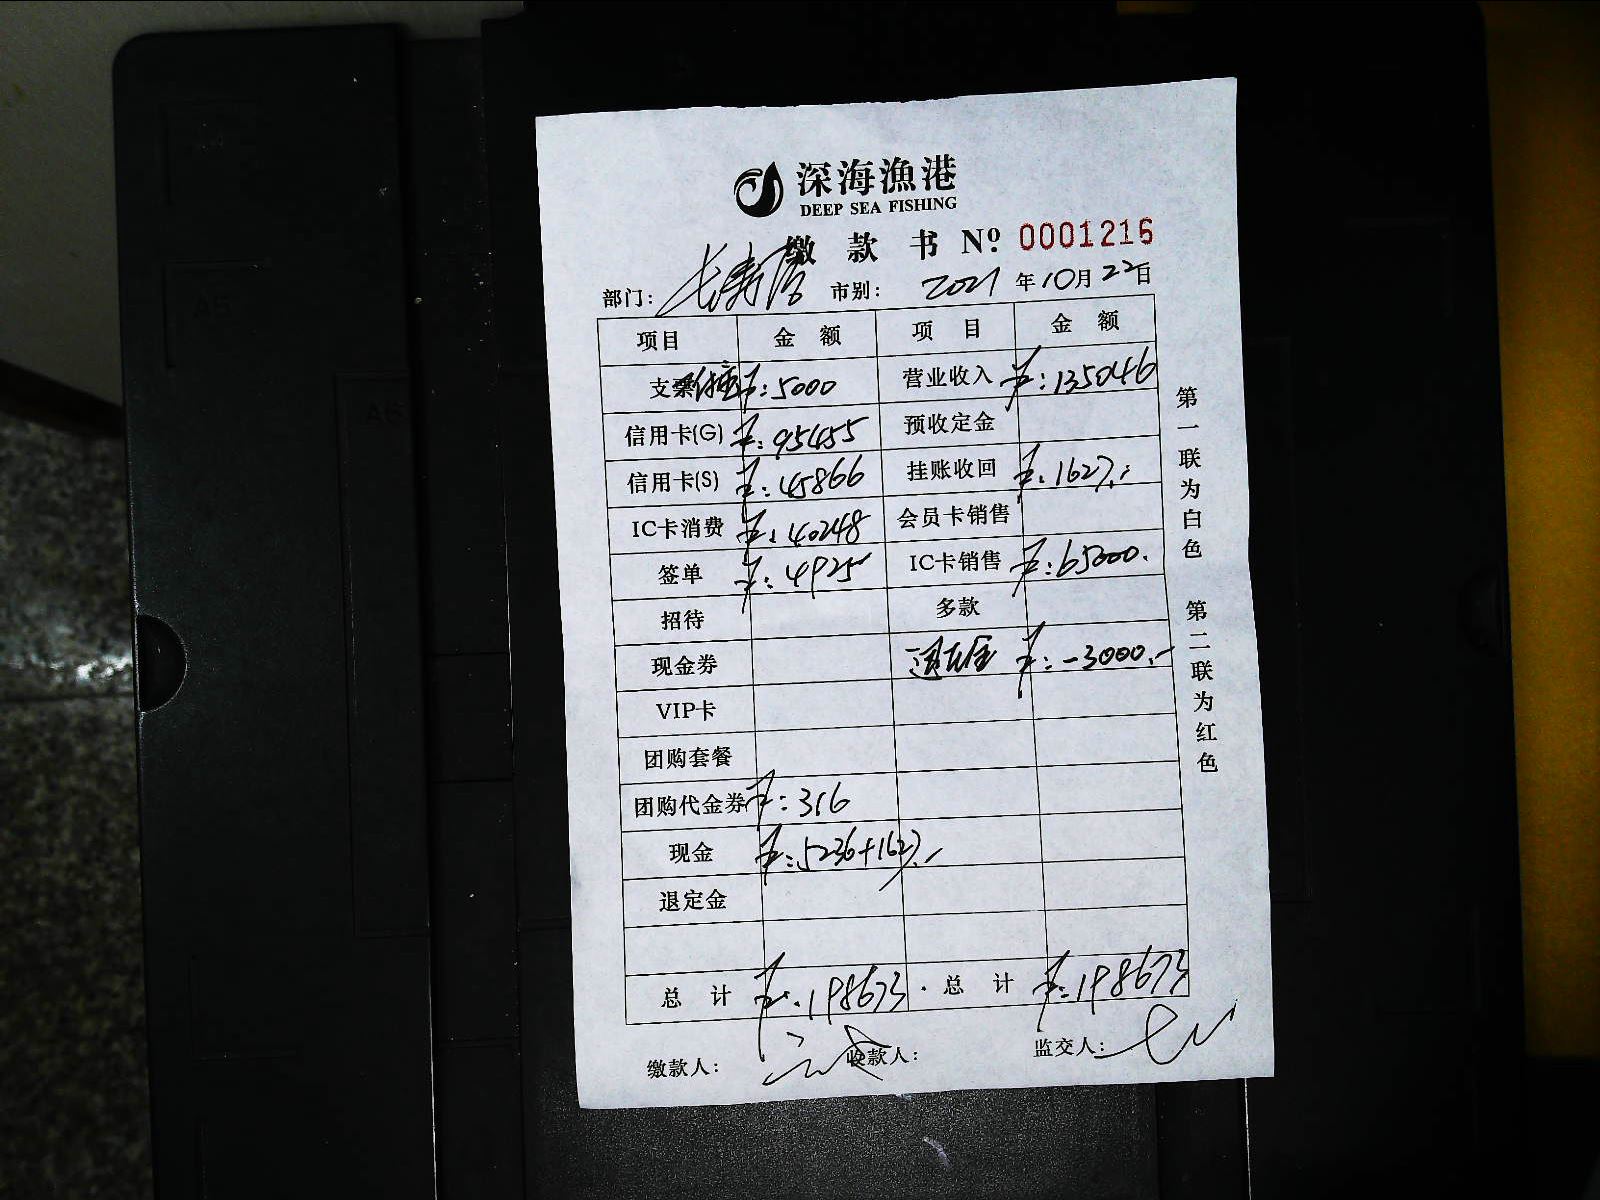 深海漁港
DEEP SEA FISHING
缴款书 Nº 0001216
部门: 长寿店 市别: 2021年10月22日
项目 金额 项目 金额
支票 ¥:5000 营业收入 ¥:135046
信用卡(G) ¥:95455 预收定金
信用卡(S) ¥:45866 挂账收回 ¥:1627.-
IC卡消费 ¥:40248 会员卡销售
签单 ¥:4925 IC卡销售 ¥:65000.
招待 多款
现金券 退定金 ¥:-3000.-
VIP卡
团购套餐
团购代金券 ¥:316
现金 ¥:5236+1627.-
退定金
总计 ¥:198673. 总计 ¥:198673
缴款人: 收款人: 监交人:
第一联为白色 第二联为红色
A5
A6